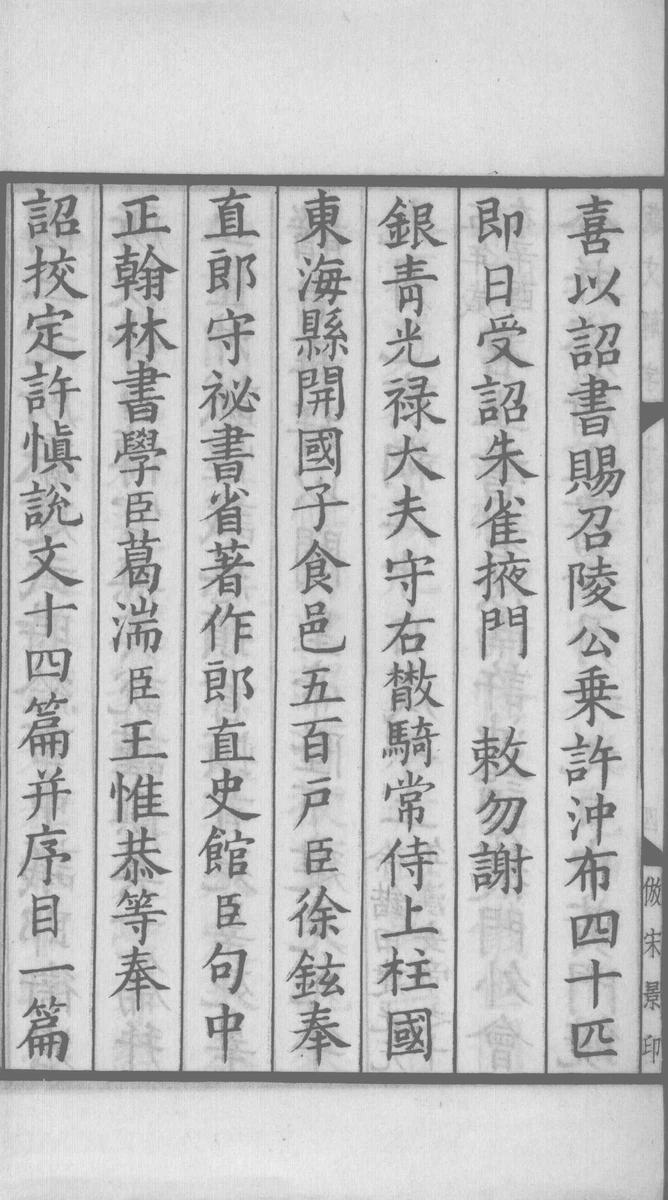 喜以詔書賜召陵公乗許沖布四十匹
即日受詔朱雀掖門　敕勿謝
銀青光禄大夫守右散騎常侍上柱國
東海縣開國子食邑五百戸臣徐鉉奉
直郎守祕書省著作郎直史館臣句中
正翰林書學臣葛湍臣王惟恭等奉
詔挍定許慎說文十四篇并序目一篇
倣宋景印